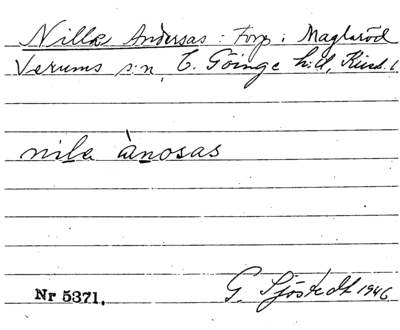 Nilla Andersas : Torp i Maglaröd
Verums s:n, V. Göinge h:d, Krist. l.
nila ànosas
Nr 5371. G. Sjöstedt 1946.